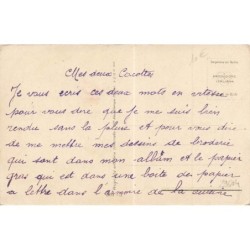 Mes deux Cocottes
Je vous écris ces deux mots en vitesse
pour vous dire que je me suis bien
rendue sans la pluie et pour vous dire
de me mettre mes dessins de broderie
qui sont dans mon album et le papier
gras qui est dans une boite de papier
a lettre dans l'armoire de la cuisine